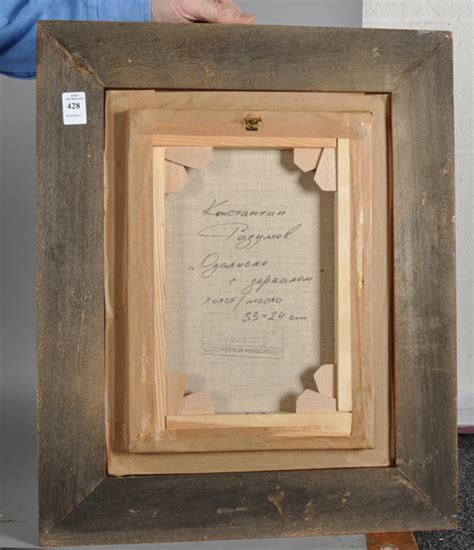 428
Константин
Разумов
„Одалиска
с зеркалом
холст/масло
33×24 cm